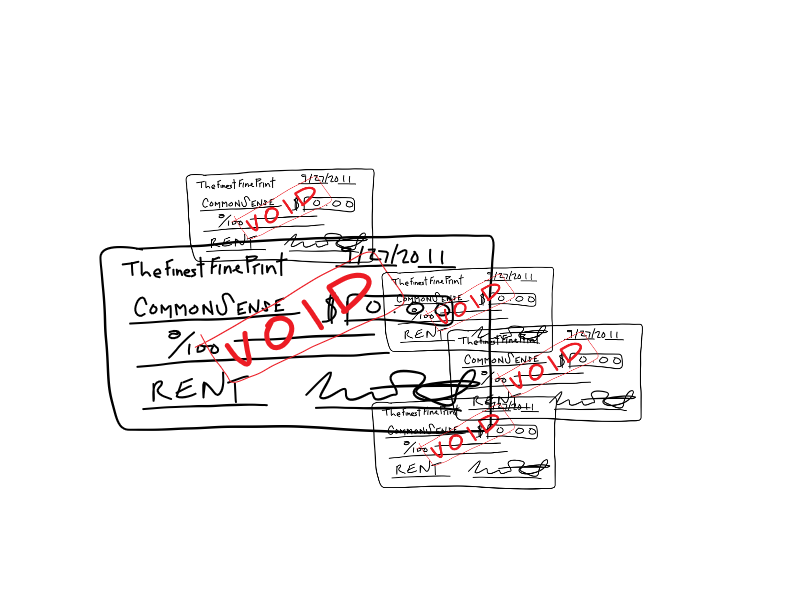 TheFinestFinePrint 9/27/2011
COMMONSENSE $ 0.00
0/100
VOID
RENT
TheFinestFinePrint 9/27/2011
COMMONSENSE $ 0.00
0/100
VOID
RENT
TheFinestFinePrint 9/27/2011
COMMONSENSE $ 0.00
0/100
VOID
RENT
TheFinestFinePrint 9/27/2011
COMMONSENSE $ 0.00
0/100
VOID
RENT
TheFinestFinePrint 9/27/2011
COMMONSENSE $ 0.00
0/100
VOID
RENT